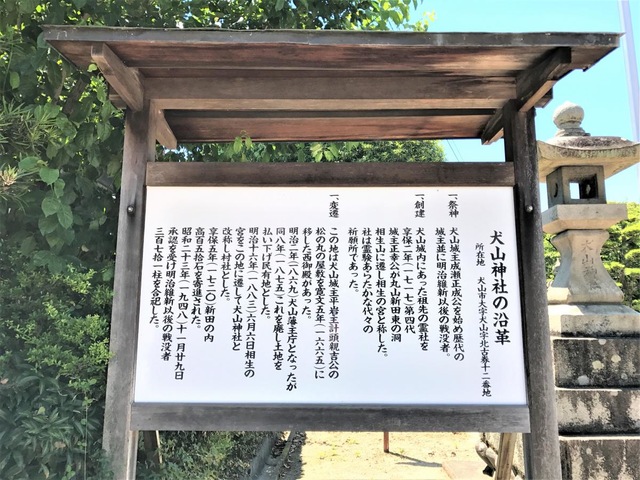 犬山神社の沿革
所在地　犬山市大字犬山字北古券十二番地
一、祭神
犬山城主成瀬正成公を始め歴代の
城主並に明治維新以後の戦没者。
一、創建
犬山城内にあった祖先の霊社を
享保二年(一七一七)第四代
城主正幸公が丸山新田東の洞
相生山に遷し相生の宮と称した。
社は霊験あらたかな代々の
祈願所であった。
一、変遷
この地は犬山城主平岩主計頭親吉公の
松の丸の屋敷を寛文五年(一六六五)に
移した西御殿があった。
明治二年(一八六九)犬山藩主庁となったが
同八年(一八七五)これを廃し土地を
払い下げ民有地とした。
明治十六年(一八八三)六月六日相生の
宮をこの地に遷して犬山神社と
改称し村社とした。
享保五年(一七二〇)新田の内
高百五拾石を寄進された。
昭和二十三年(一九四八)十一月廿九日
承認を受け明治維新以後の戦没者
三百七拾一柱を合記した。